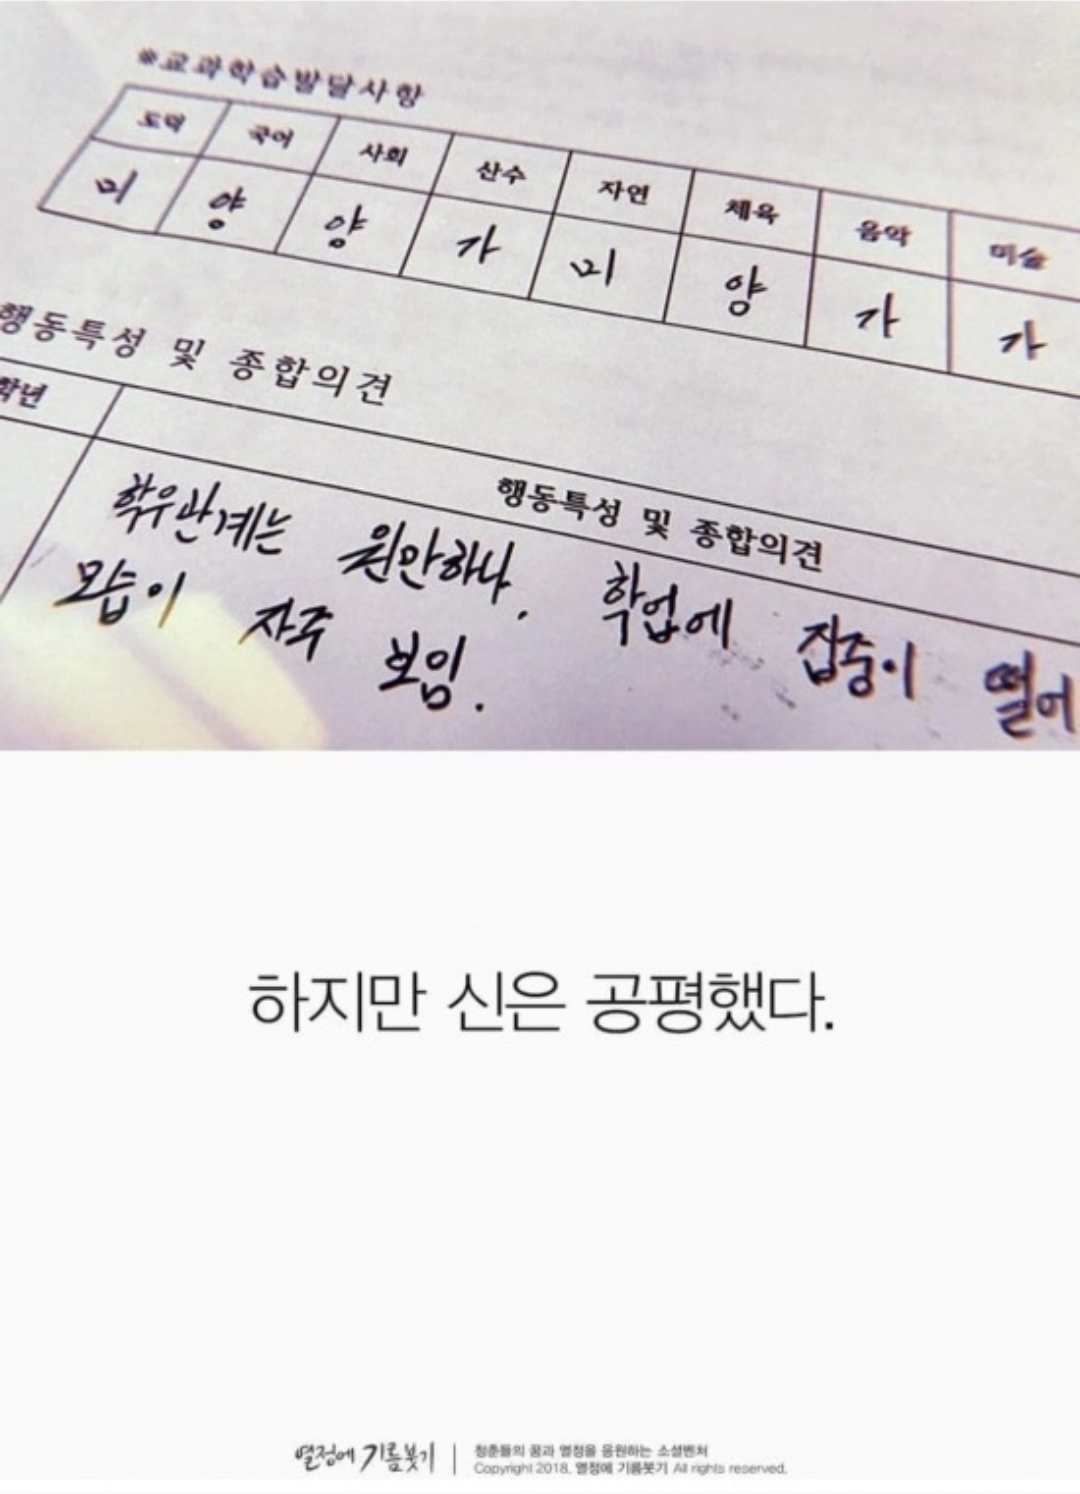 ※교과학습발달사항
도덕 국어 사회 산수 자연 체육 음악 미술
미 양 양 가 미 양 가 가
행동특성 및 종합의견
학년
행동특성 및 종합의견
학우관계는 원만하나, 학업에 집중이 떨어
모습이 자주 보임.
하지만 신은 공평했다.
열정에 기름붓기 | 청춘들의 꿈과 열정을 응원하는 소셜벤처
Copyright 2018. 열정에 기름붓기 All rights reserved.